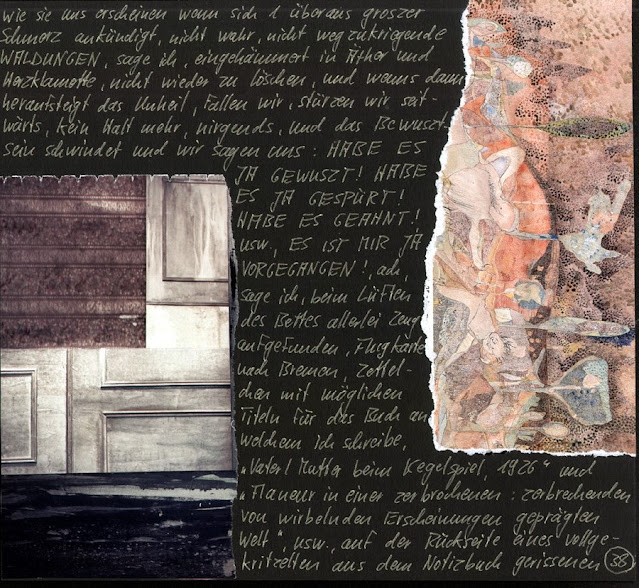 wie sie uns erscheinen wenn sich 1 überaus groszer
Schmerz ankündigt, nicht wahr, nicht wegzukriegende
WALDUNGEN, sage ich, eingehämmert in Äther und
Herzklamotte, nicht wieder zu löschen, und wenns dann
heransteigt das Unheil, fallen wir, stürzen wir seit-
wärts, kein Halt mehr, nirgends, und das Bewuszt-
sein schwindet und wir sagen uns : HABE ES
JA GEWUSZT! HABE
ES JA GESPÜRT!
HABE ES GEAHNT!
usw., ES IST MIR JA
VORGEGANGEN!, ach,
sage ich, beim Lüften
des Bettes allerlei Zeug
aufgefunden, Flugkarte
nach Bremen, Zettel-
chen mit möglichen
Titeln für das Buch an
welchem ich schreibe,
„Vater / Mutter beim Kegelspiel, 1926“ und
„Flaneur in einer zerbrochenen : zerbrechenden
von wirbelnden Erscheinungen geprägten
Welt“, usw., auf der Rückseite eines vollge-
kritzelten aus dem Notizbuch gerissenen 38